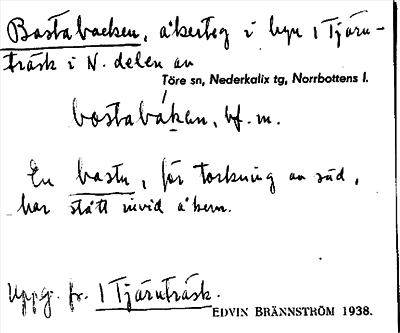 Bastabacken, åkerteg i byn 1 Tjärn-
träsk i N. delen av
Töre sn, Nederkalix tg, Norrbottens l.
bostabákan, bf. m.
En bastu, för torkning av säd,
har stått invid åkern.
Uppg. fr. 1 Tjärnträsk.
EDVIN BRÄNNSTRÖM 1938.